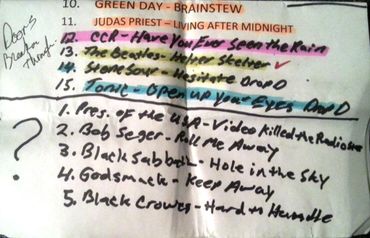 10. GREEN DAY - BRAINSTEW
11. JUDAS PRIEST - LIVING AFTER MIDNIGHT
Doors
Break on
Through
12. CCR - Have You Ever Seen the Rain
13. The Beatles - Helter Skelter ✓
14. Stone Sour - Hesitate Drop D
15. Tonic - Open up your Eyes Drop D
?
1. Pres. of the USA - Video Killed the Radio Star
2. Bob Seger - Roll Me Away
3. Black Sabbath - Hole in the Sky
4. Godsmack - Keep Away
5. Black Crowes - Hard to Handle